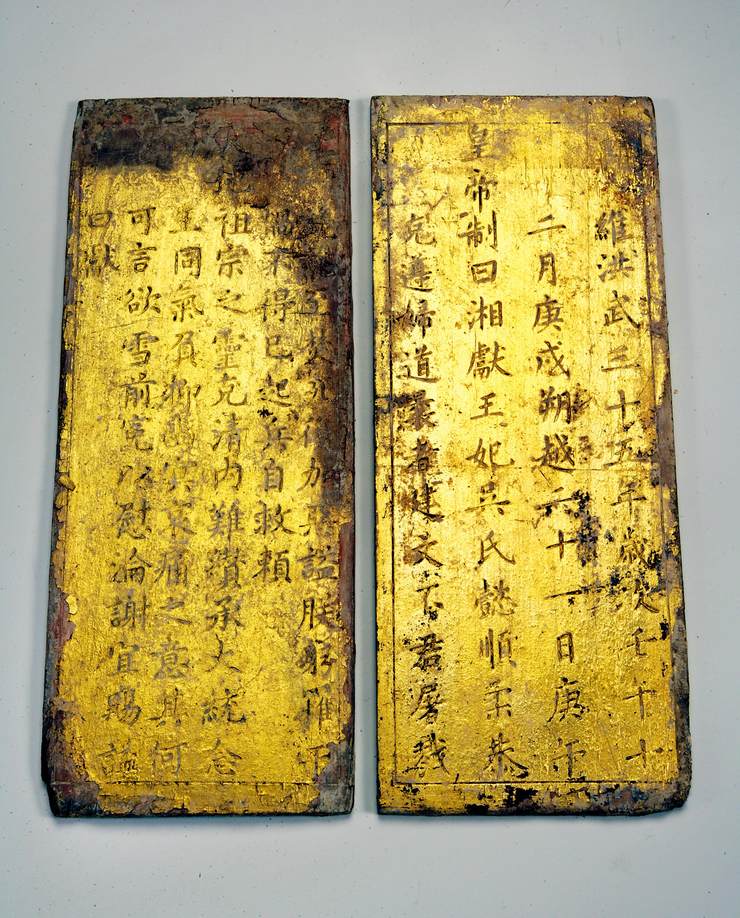 維洪武三十五年歲次壬
二月庚戌朔越六十一日庚申
皇帝制曰湘獻王妃吳氏懿順柔恭
克遵婦道曩者建文不君屠戮
加戾諡朕躬罹于
禍不得已起兵自救賴
祖宗之靈克清內難纘承大統念
王同氣負抑幽冥哀痛之意其何
可言欲雪前冤以慰淪謝宜賜諡
曰獻